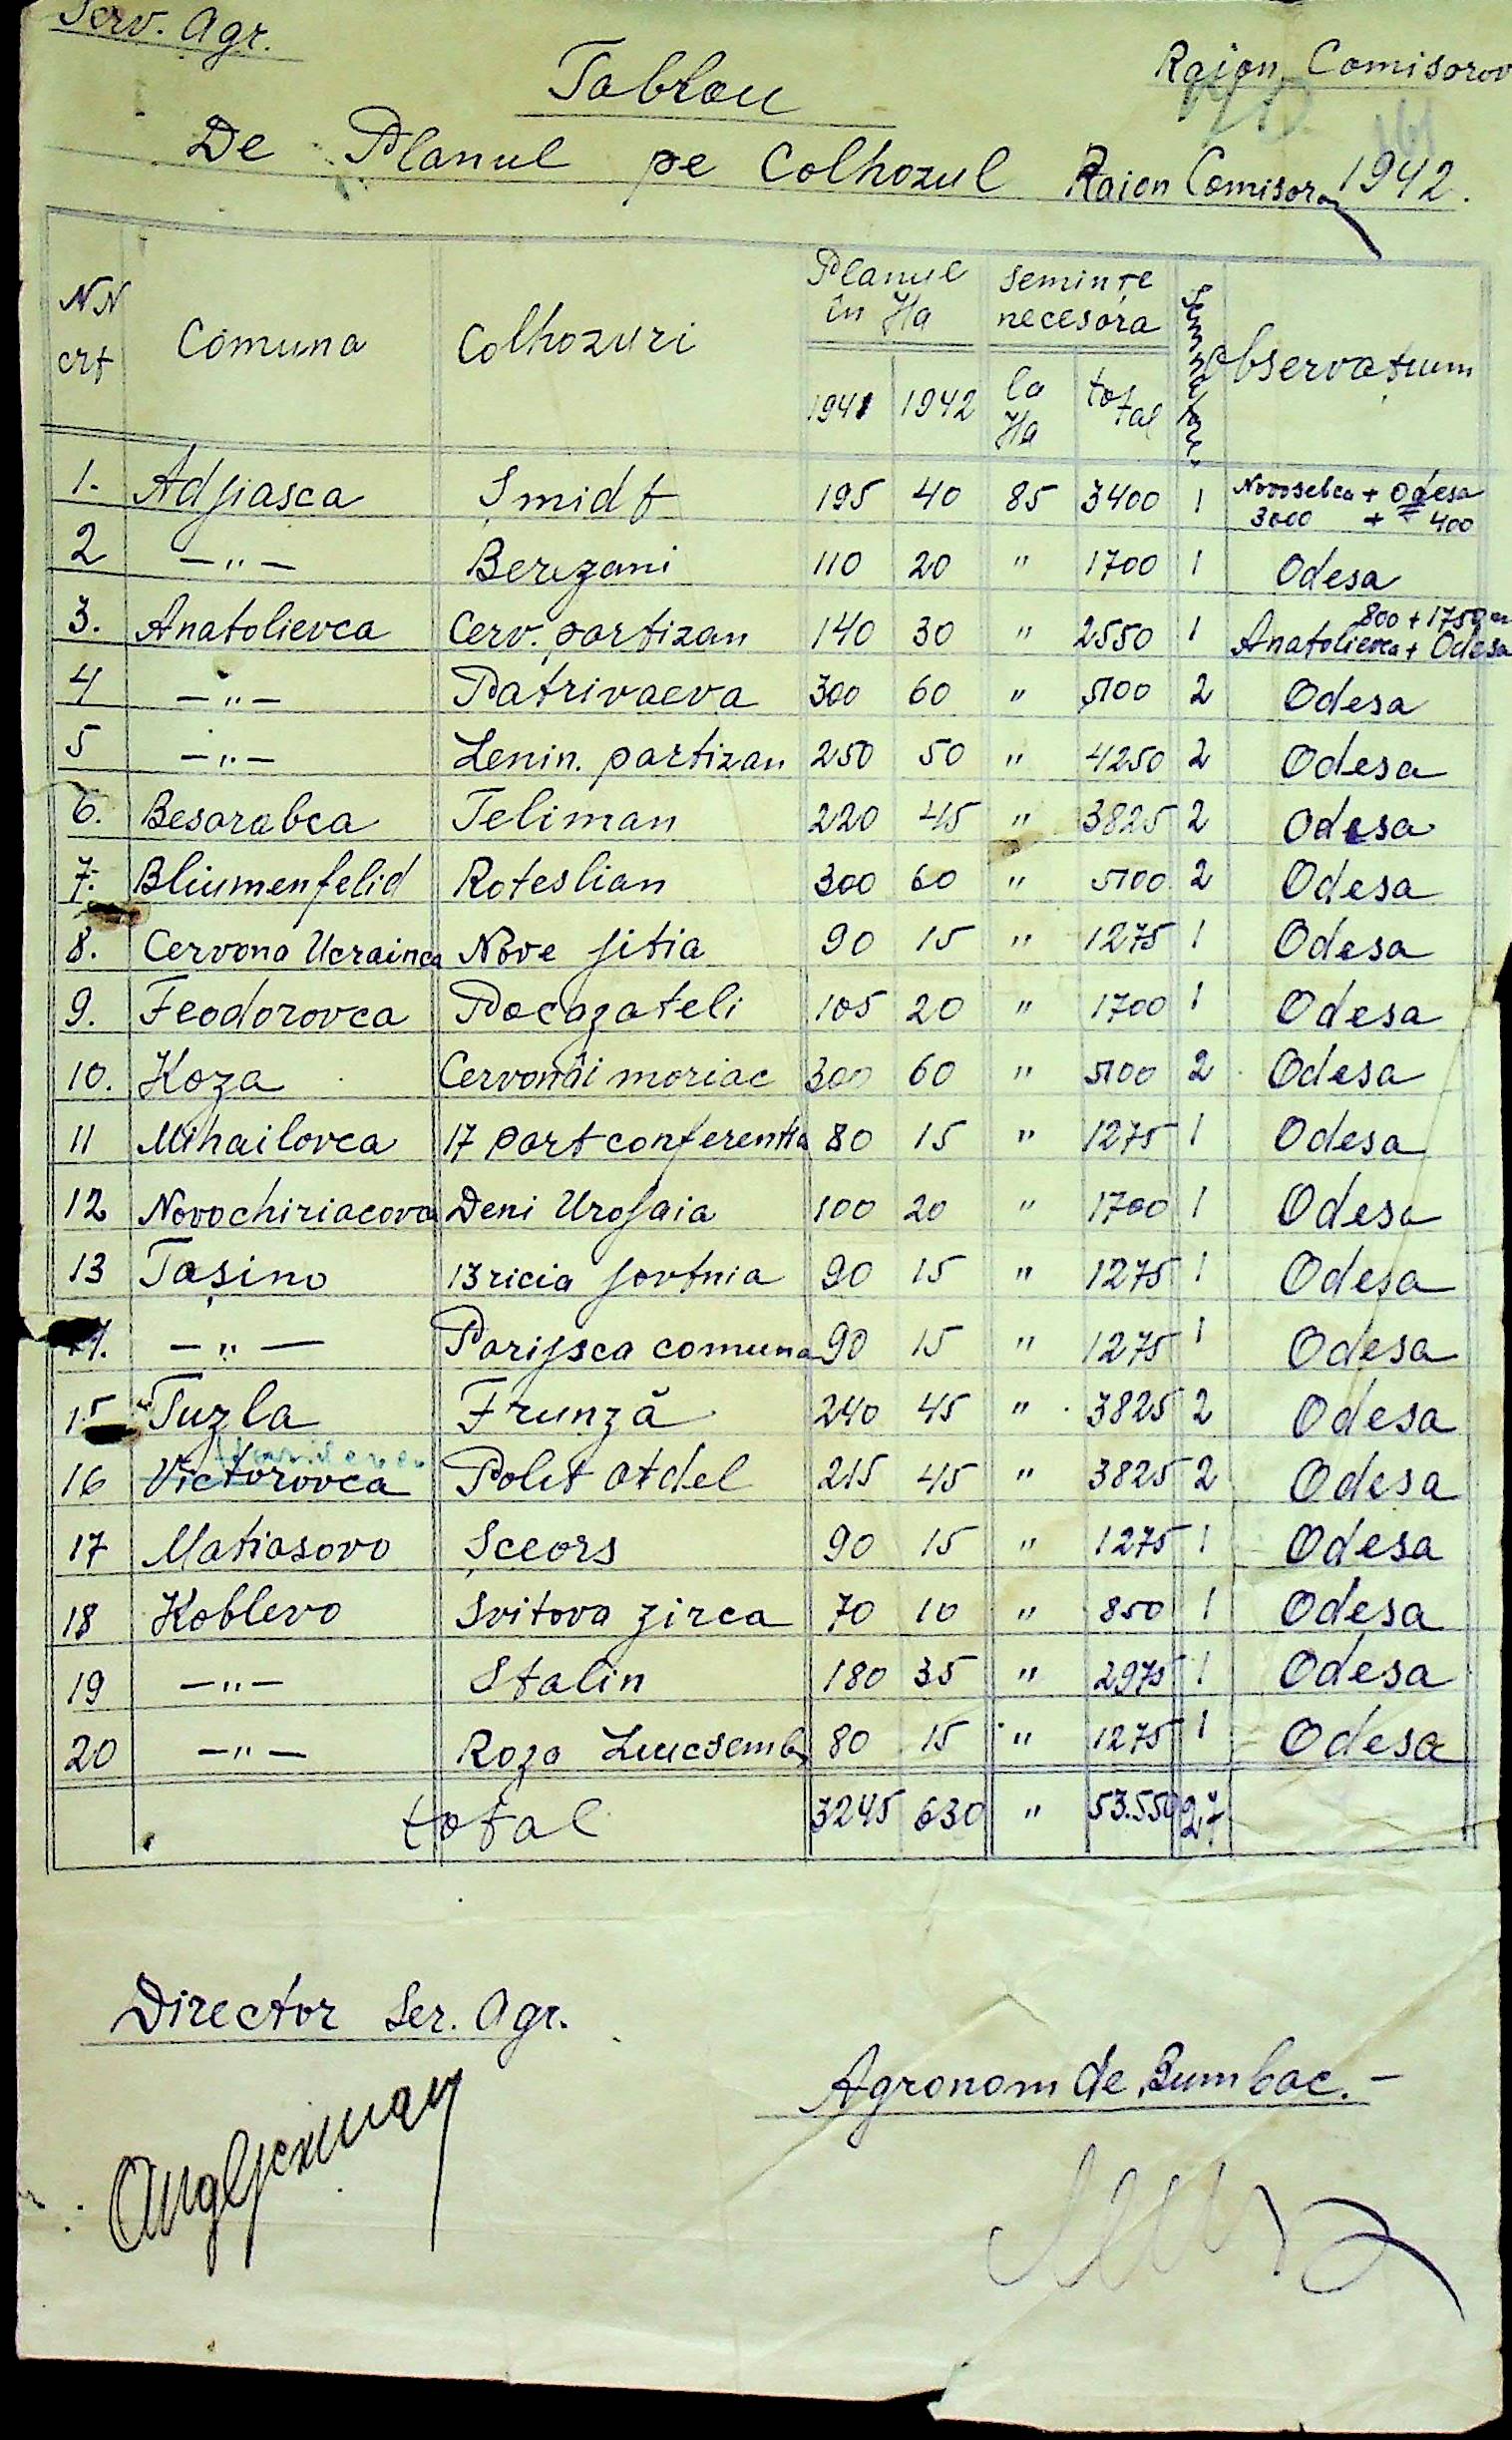 Serv. Agr.
Raion Comisorov
Tablou
De Planul pe Colhozul Raion Comisorov 1942.
NN crt Comuna Colhozuri Planul în Ha seminţe necesara Observaţium
1941 1942 la Ha total
1. Adjiasca Şmidt 195 40 85 3400 1 Novoselca + Odesa
3000 + 400
2 —"— Berezani 110 20 " 1700 1 Odesa
3. Anatolievca Cerv. partizan 140 30 " 2550 1 800 + 1750
Anatolievca + Odesa
4 —"— Patrivaeva 300 60 " 5100 2 Odesa
5 —"— Lenin. partizan 250 50 " 4250 2 Odesa
6. Besarabca Teliman 220 45 " 3825 2 Odesa
7. Bliumenfelid Roteslian 300 60 " 5100 2 Odesa
8. Cervona Ucrainca Nove jitia 90 15 " 1275 1 Odesa
9. Feodorovca Pocazateli 105 20 " 1700 1 Odesa
10. Koza Cervonâi moriac 300 60 " 5100 2 Odesa
11 Mihailovca 17 partconferentia 80 15 " 1275 1 Odesa
12 Novochiriacova Deni Urojaia 100 20 " 1700 1 Odesa
13 Taşino 13 ricia jovtnia 90 15 " 1275 1 Odesa
14. —"— Parijsca comuna 90 15 " 1275 1 Odesa
15 Tuzla Frunză 240 45 " 3825 2 Odesa
16 Victorovca Polit otdel 215 45 " 3825 2 Odesa
17 Matiasovo Şceors 90 15 " 1275 1 Odesa
18 Koblevo Svitova zirca 70 10 " 850 1 Odesa
19 —"— Stalin 180 35 " 2975 1 Odesa
20 —"— Roza Liucsemb 80 15 " 1275 1 Odesa
total 3245 630 " 53.550 27
Director Ser. Agr.
Agronom de Bumbac.—